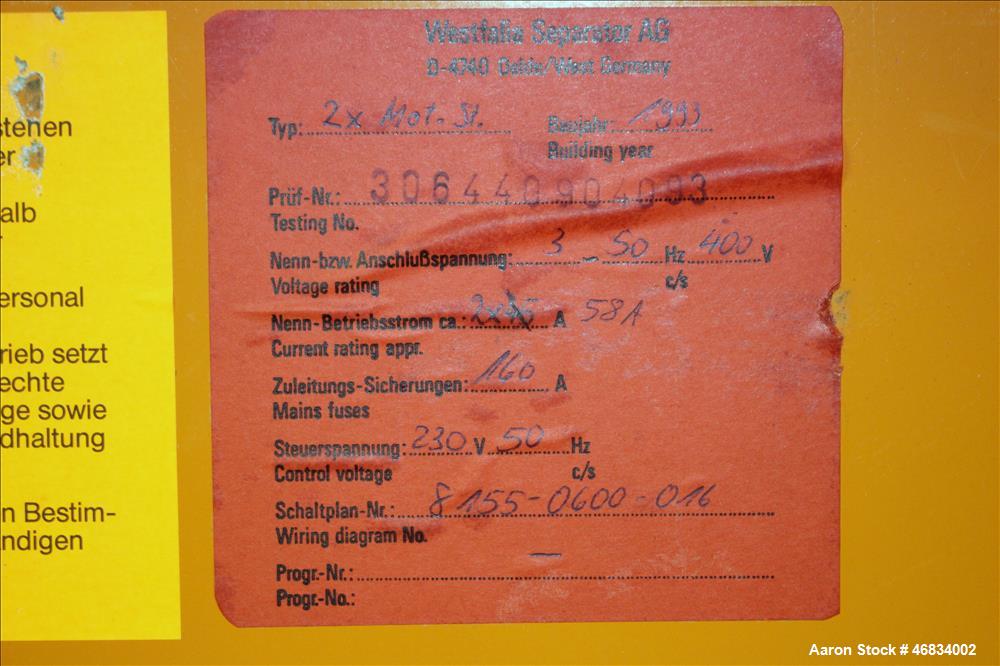 stehen
er
alb
ersonal
rieb setzt
echte
ge sowie
dhaltung
n Bestim-
ndigen
Westfalia Separator AG
D-4740 Oelde/West Germany
Typ: 2x Mot.-St. Baujahr: 1993
Building year
Prüf-Nr.: 306440904093
Testing No.
Nenn-bzw. Anschlußspannung: 3 ~ 50 Hz 400 V
Voltage rating c/s
Nenn-Betriebsstrom ca.: A 58A
Current rating appr.
Zuleitungs-Sicherungen: 160 A
Mains fuses
Steuerspannung: 230 V 50 Hz
Control voltage c/s
Schaltplan-Nr.: 8155-0600-016
Wiring diagram No.
Progr.-Nr.: —
Progr.-No.:
Aaron Stock # 46834002